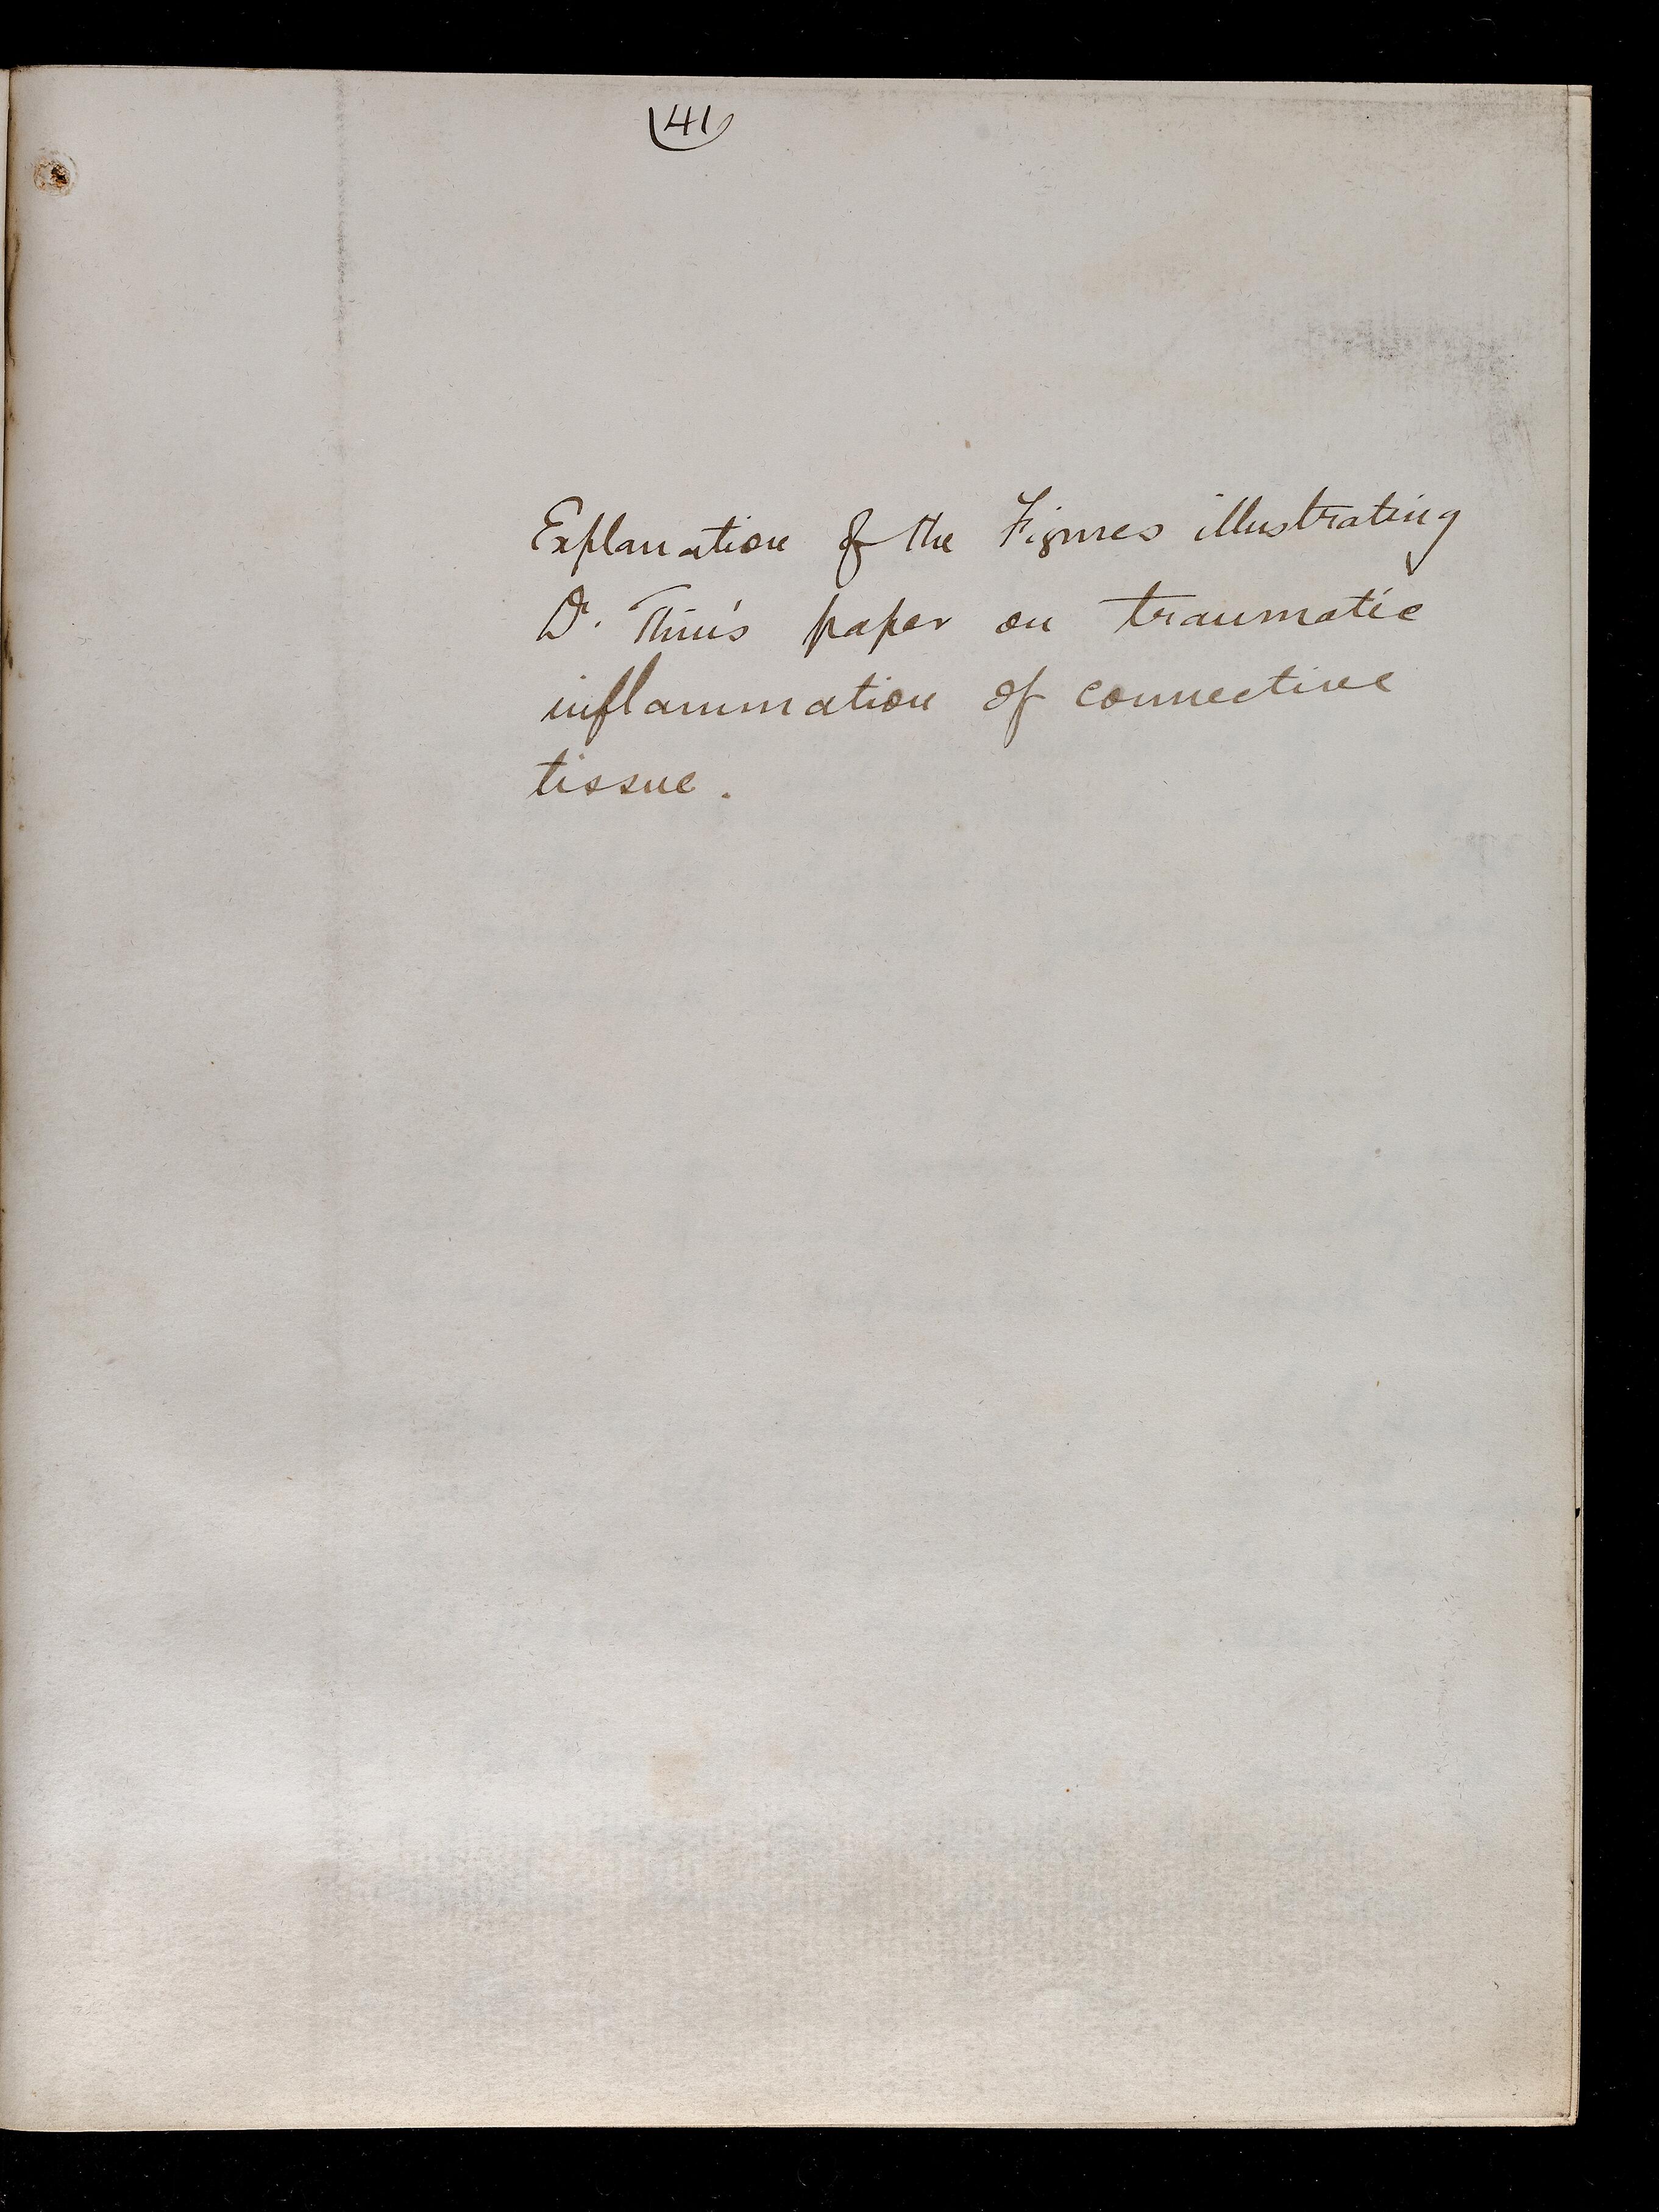 41
Explanation of the Figures illustrating
Dr. Thin's paper on traumatic
inflammation of connective
tissue.